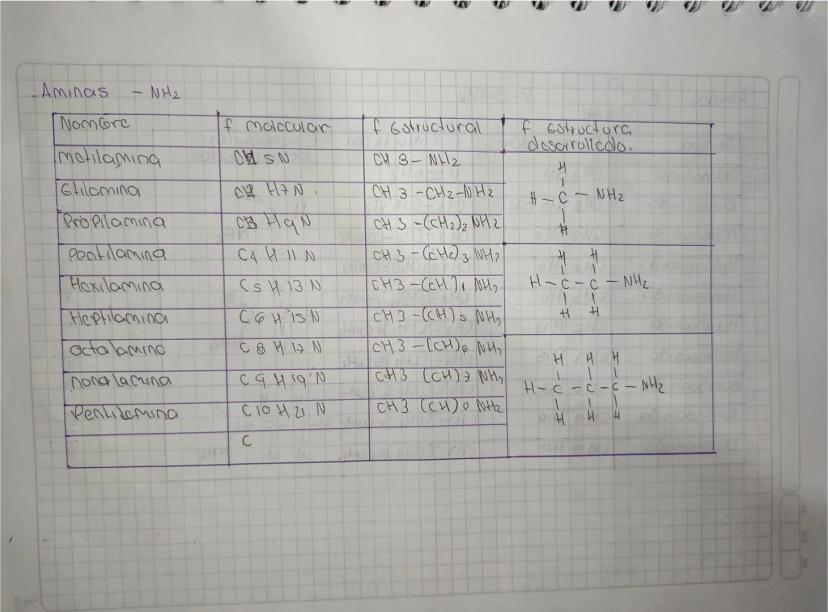 Aminas - NH2
Nombre f molecular f estructural f estructura
desarollada.
metilamina CH5N CH3-NH2
Etilamina C2 H7N CH3-CH2-NH2
Propilamina C3 H9N CH3-(CH2)2 NH2
Pentilamina C4 H 11 N CH3-(CH2)3 NH2
Hexilamina C5 H 13 N CH3-(CH)4 NH2
Heptilamina C6 H 15 N CH3-(CH)5 NH2
octalamina C8 H 17 N CH3-(CH)6 NH2
nonalamina C9 H 19 N CH3 (CH)7 NH2
Pentilamina C10 H 21 N CH3 (CH) NH2
C
H
H-C-NH2
H
H H
H-C-C-NH2
H H
H H H
H-C-C-C-NH2
H H H